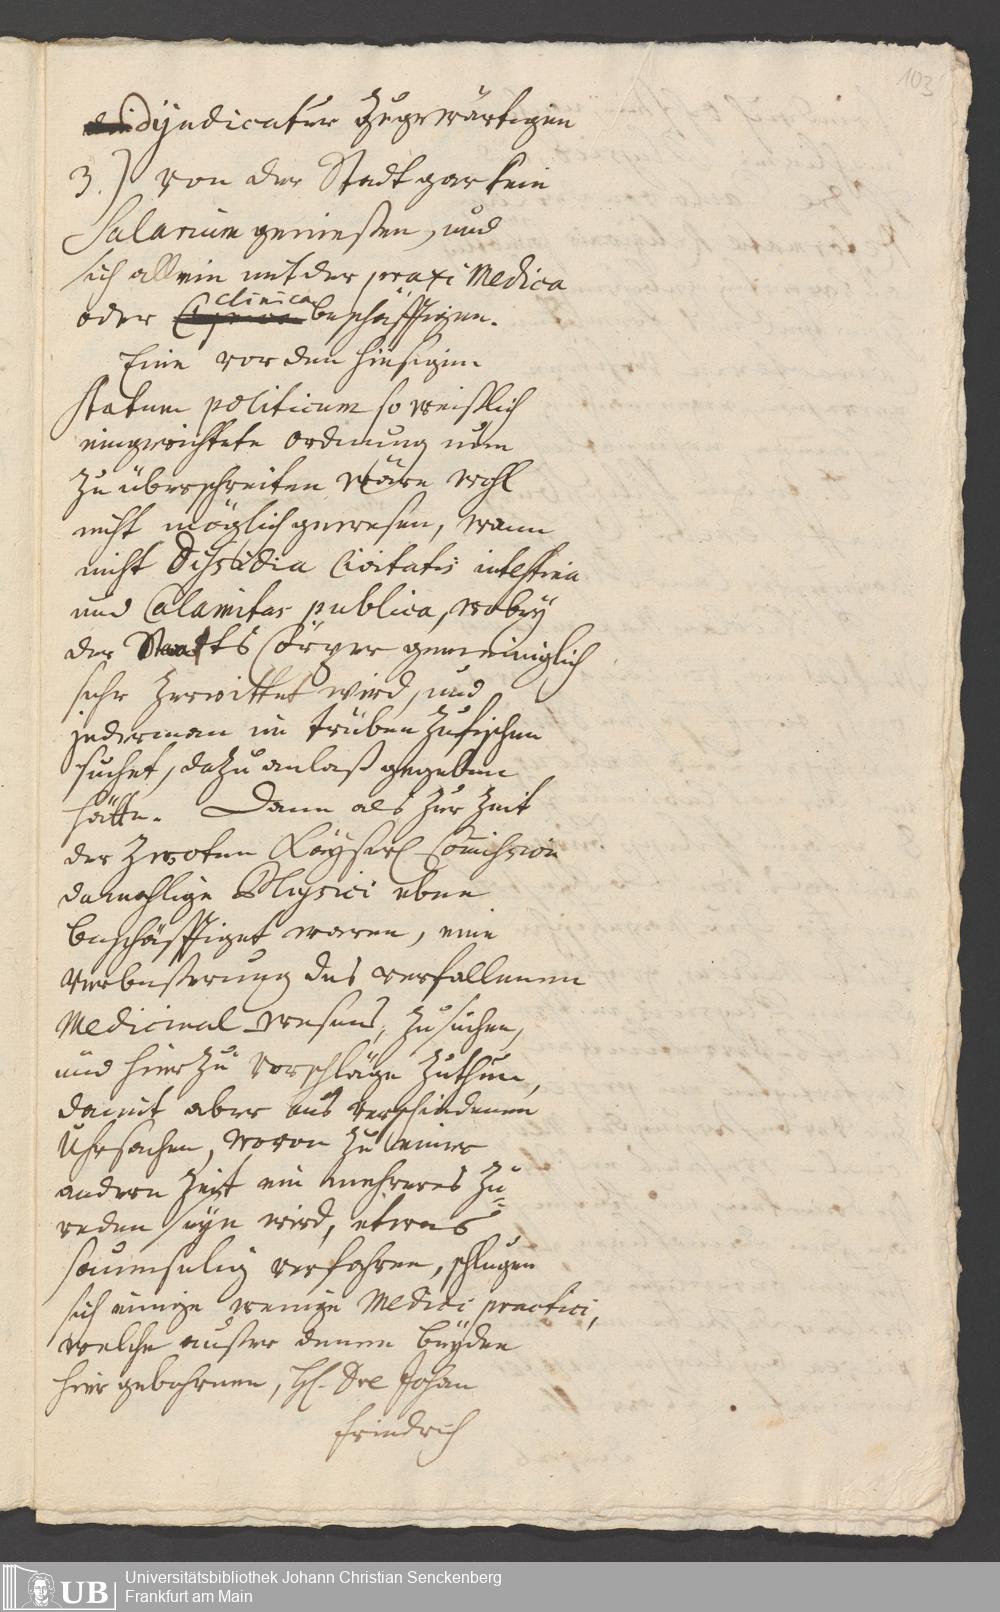 103
Syndicatur zugewärtigen
3.) von der Stadt gar kein
Salarium genießen, und
sich allein mit der praxi Medica
oder clinica beschäfftigen.
Eine vor den hiesigen
statum politicum so weißlich
eingerichtete ordnung nun
zu überschreiten wäre wohl
nicht möglich gewesen, wann
nicht Dissidia Civitatis intestina
und Calamitas publica, wobey
der Staats Cörper gemeiniglich
sehr zerrüttet wird, und
jederman im trüben zufischen
suchet, dazu anlaß gegeben
hätte. Dann als zur Zeit
der zwoten Kayserl Commission
damahlige Physici eben
beschäfftiget waren, eine
verbeßerung des verfallenen
Medicinal-wesens, zu suchen,
und hierzu vorschläge zuthun,
damit aber aus verschiedenen
Uhrsachen, wovon zu einer
andern Zeit ein mehreres zu
reden seyn wird, etwas
saumselig verfahren, schlugen
sich einige wenige Medici practici,
welche außer denen beyden
hier gebohrnen, H. Dre Johan
Friedrich
UB
Universitätsbibliothek Johann Christian Senckenberg
Frankfurt am Main